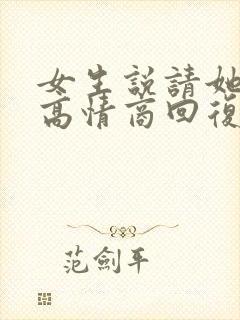 女生說請她
高情商回復
范劍平